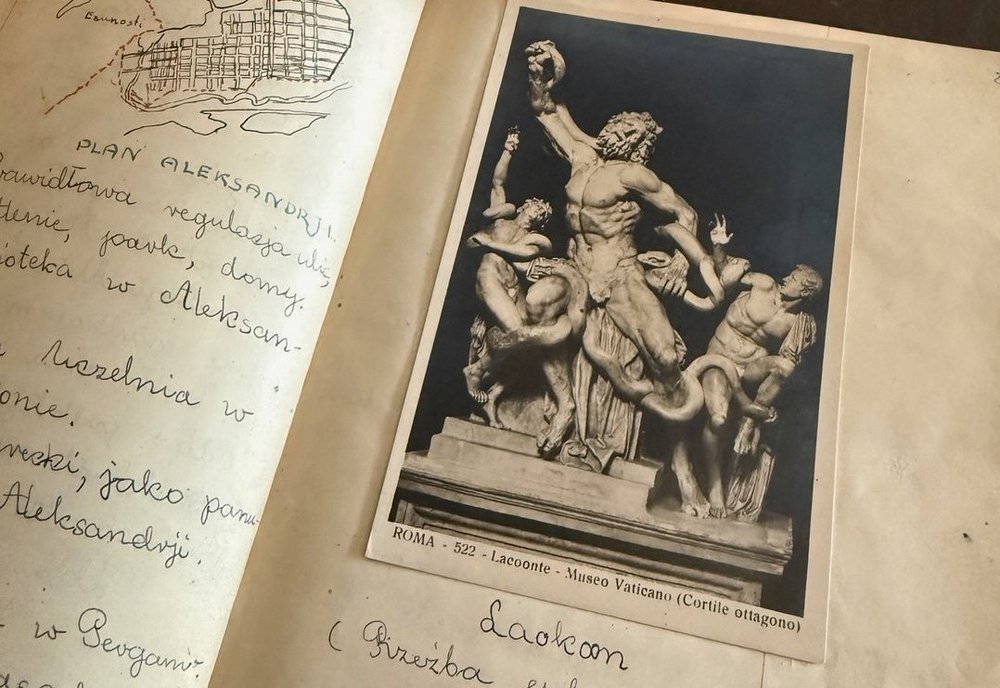 Ednnosti
PLAN ALEKSANDRJI.
rawidłowa regulazja ulic,
tlenie, park, domy.
ioteka w Aleksan-
Uczelnia w
onie.
recki, jako panu-
Aleksandrji.
w Pergami-
ROMA - 522 - Lacoonte - Museo Vaticano (Cortile ottagono)
Laokoon
( Rzeźba